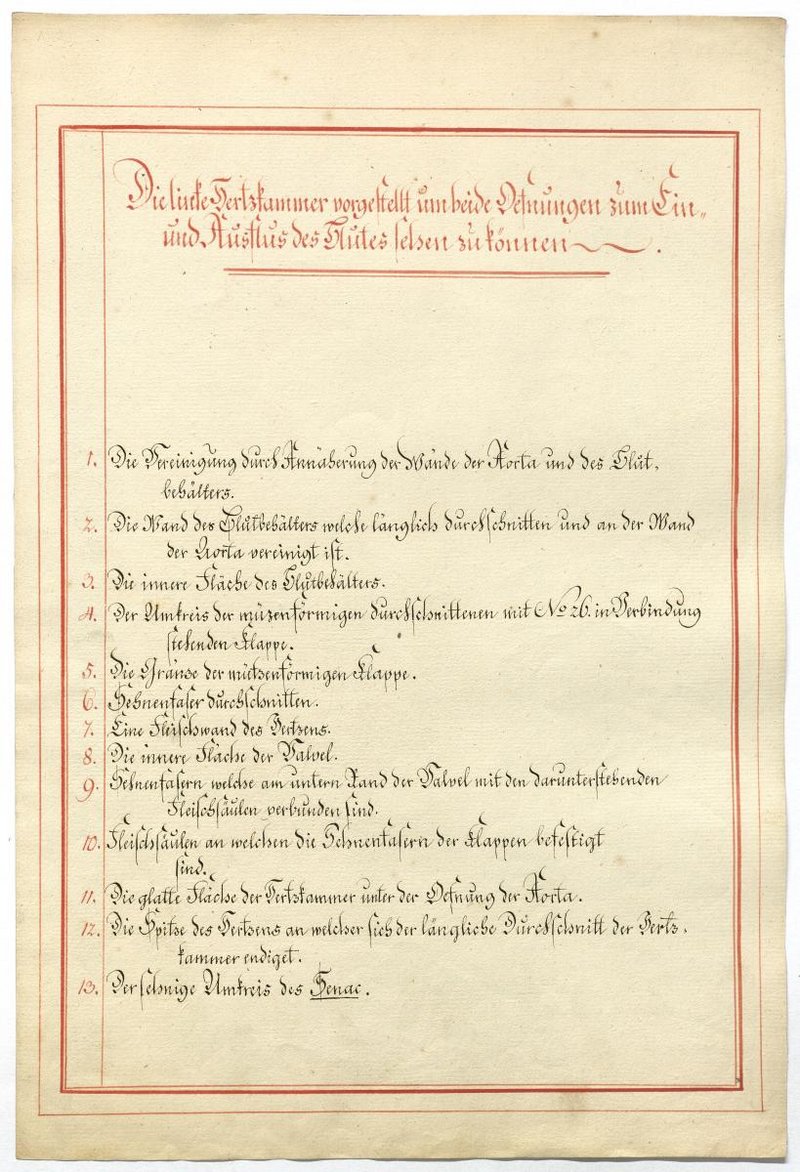 Die lincke Hertzkammer vorgestellt um beide Oefnungen zum Ein„
und Ausflus des Blutes sehen zu können.
1. Die Vereinigung durch Annäherung der Wände der Aorta und des Blut,
behälters.
2. Die Wand des Blutbehälters welche länglich durchschnitten und an der Wand
der Aorta vereinigt ist.
3. Die innere Fläche des Blutbehälters.
4. Der Umkreis der müzenförmigen durchschnittenen mit No 26. in Verbindung
stehenden Klappe.
5. Die Gränze der mützenförmigen Klappe.
6. Sehnenfaser durchschnitten.
7. Eine Fleischwand des Hertzens.
8. Die innere Fläche der Valvel.
9. Sehnenfasern welche am untern Rand der Valvel mit den darunterstehenden
Fleischsäulen verbunden sind.
10. Fleischsäulen an welchen die Sehnenfasern der Klappen befestigt
sind.
11. Die glatte Fläche der Hertzkammer unter der Oefnung der Aorta.
12. Die Spitze des Hertzens an welcher sich der längliche Durchschnitt der Hertz,
kammer endiget.
13. Der sehnige Umkreis des Senac.